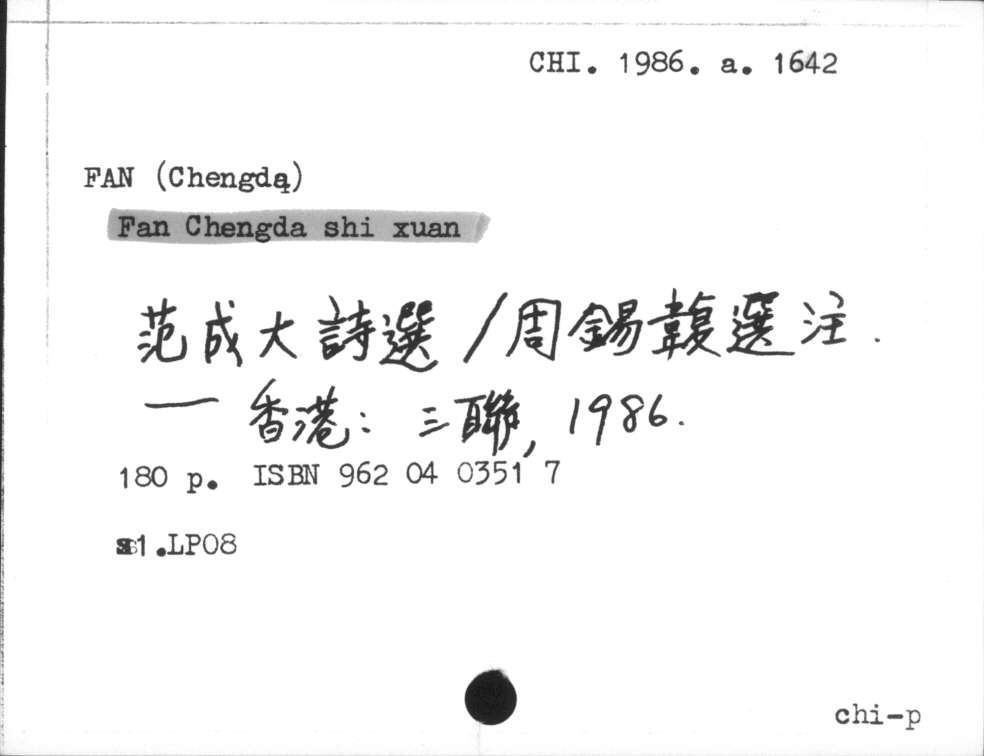 CHI. 1986. a. 1642
FAN (Chengda)
Fan Chengda shi xuan
范成大詩選 / 周錫䪖選注.
— 香港: 三聯, 1986.
180 p. ISBN 962 04 0351 7
1.LP08
chi-p